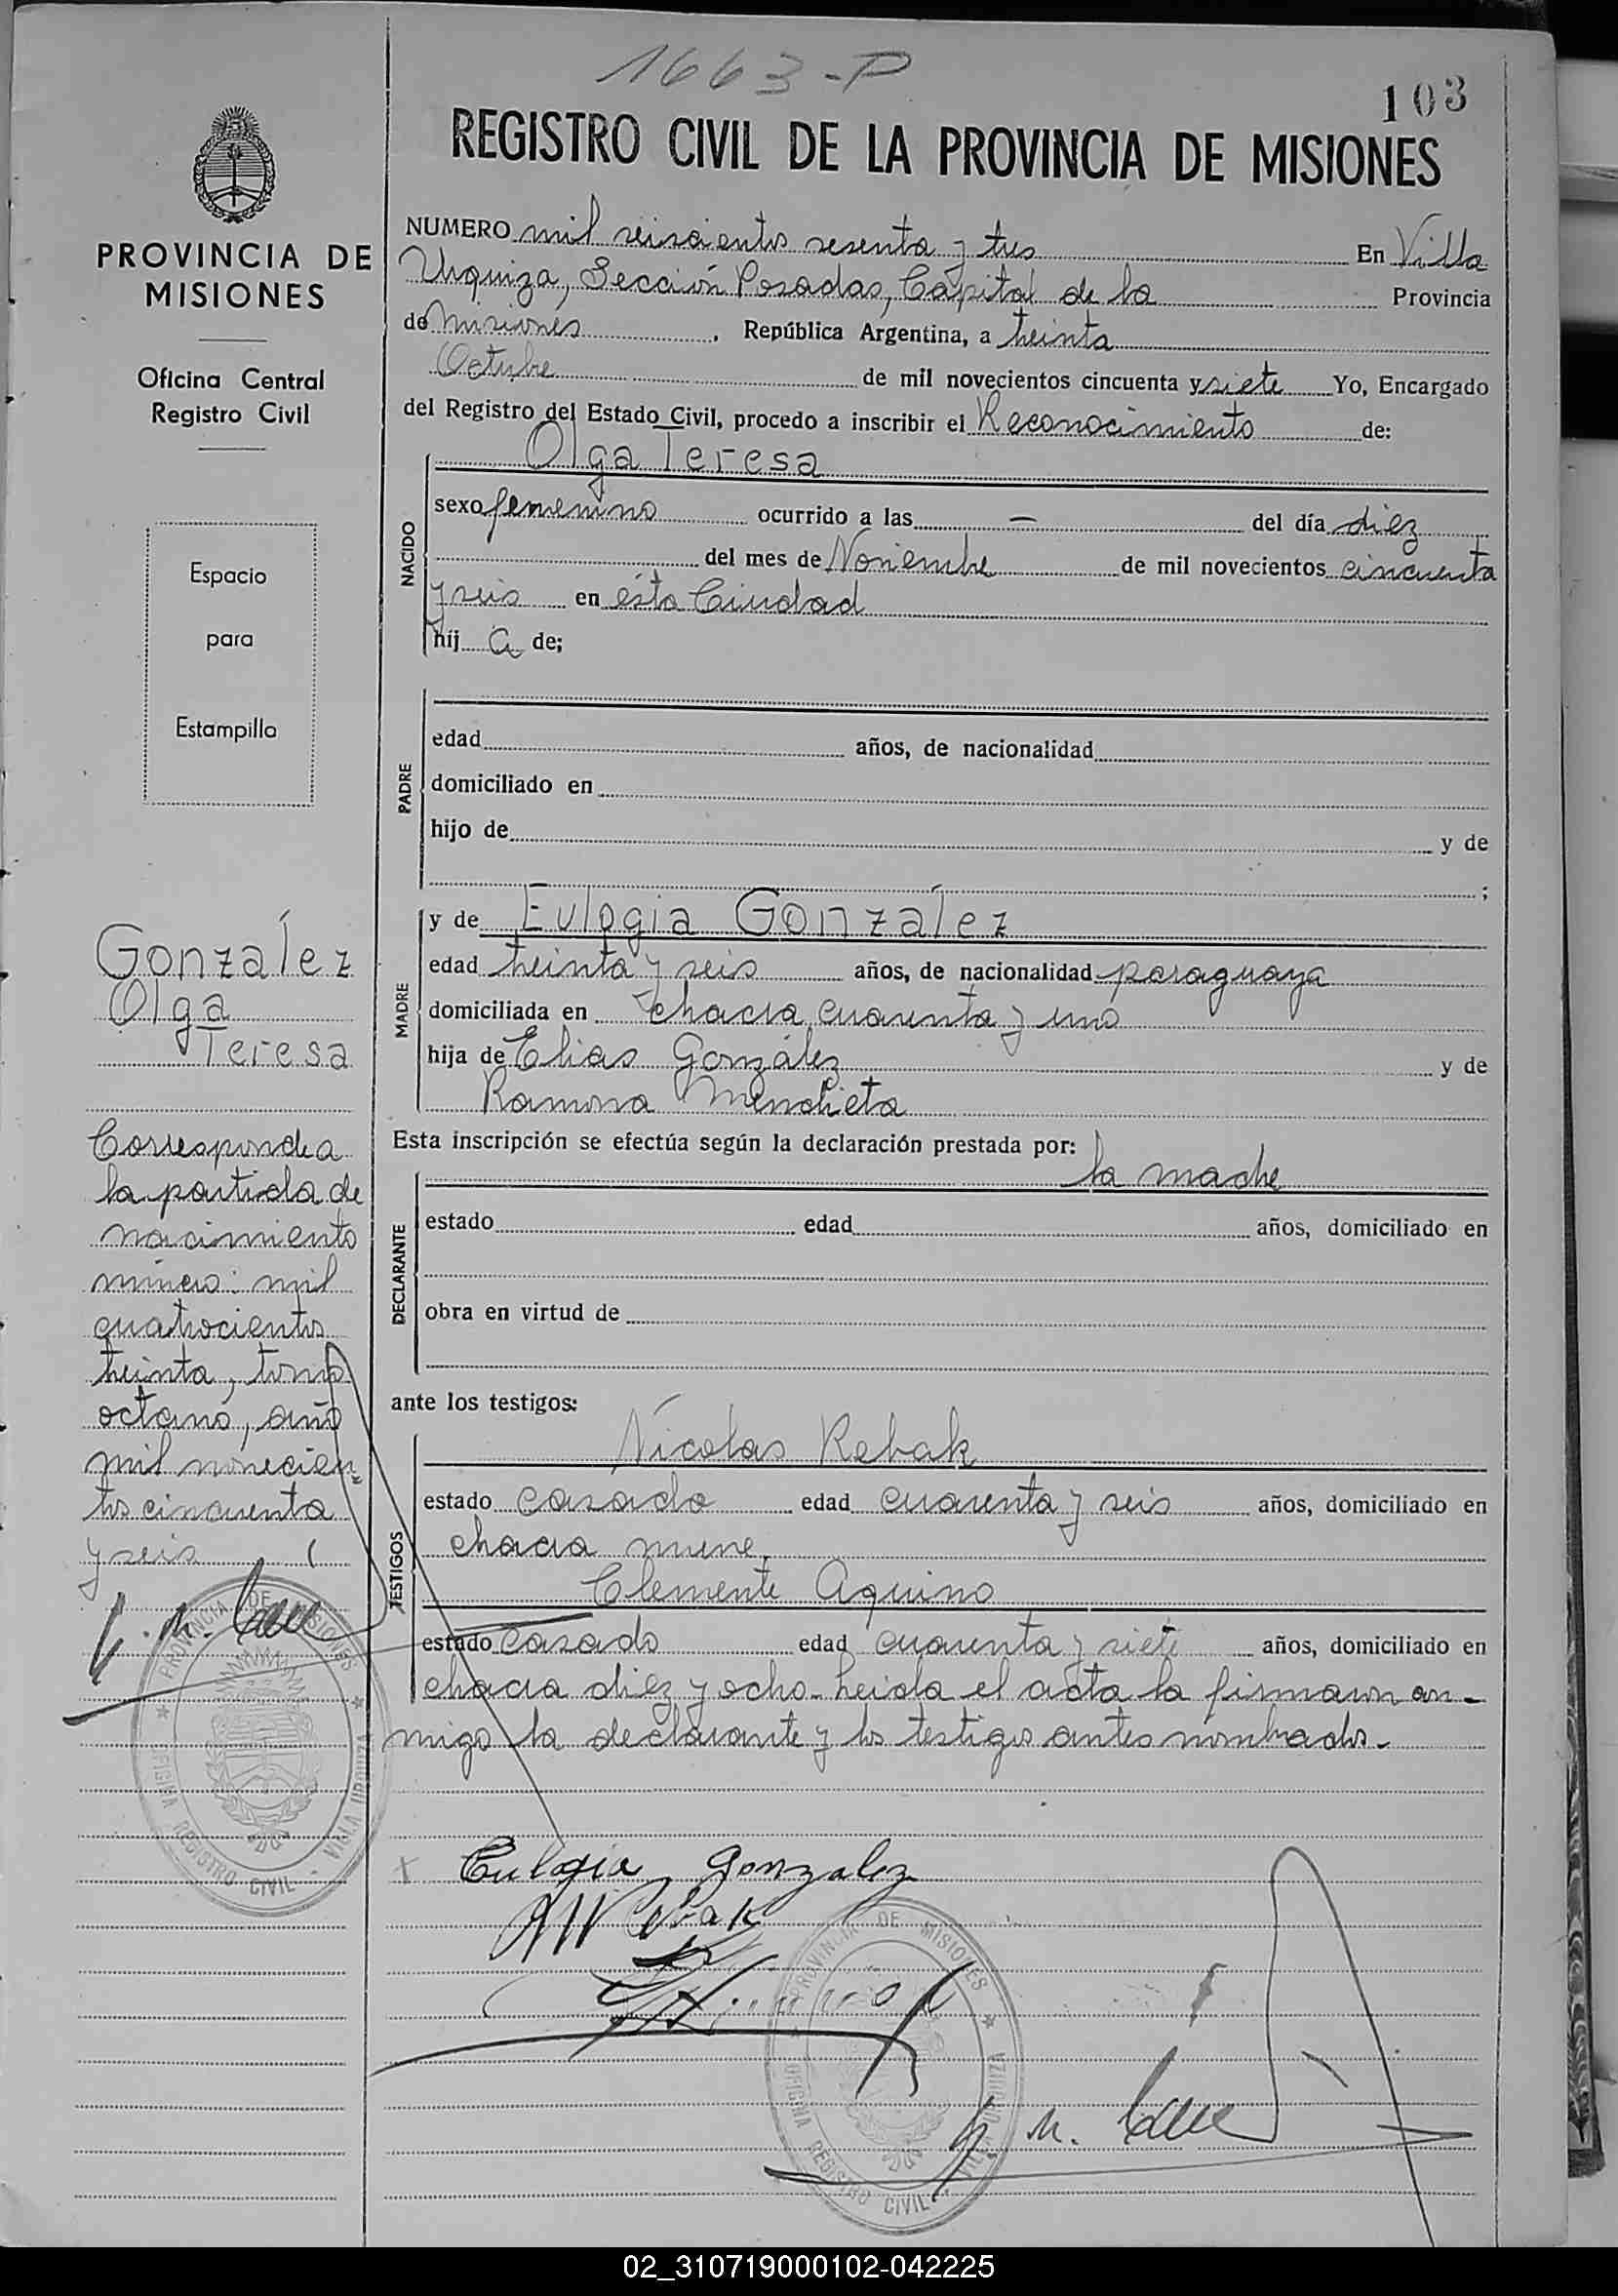 1663-P
103
REGISTRO CIVIL DE LA PROVINCIA DE MISIONES
PROVINCIA DE
MISIONES
Oficina Central
Registro Civil
Espacio
para
Estampilla
González
Olga
Teresa
Corresponde a
la partida de
nacimiento
número: mil
cuatrocientos
treinta, tomo
octavo, año
mil novecien-
tos cincuenta
y seis
PROVINCIA DE MISIONES
OFICINA REGISTRO CIVIL - VILLA URQUIZA
NUMERO mil seiscientos sesenta y tres En Villa
Urquiza, Sección Posadas, Capital de la Provincia
de Misiones, República Argentina, a treinta
Octubre de mil novecientos cincuenta y siete Yo, Encargado
del Registro del Estado Civil, procedo a inscribir el Reconocimiento de:
NACIDO
Olga Teresa
sexo femenino ocurrido a las — del día diez
del mes de Noviembre de mil novecientos cincuenta
y seis en ésta Ciudad
hij a de;
PADRE
edad años, de nacionalidad
domiciliado en
hijo de y de
;
MADRE
y de Eulogia González
edad treinta y seis años, de nacionalidad paraguaya
domiciliada en chacra cuarenta y uno
hija de Elias González y de
Ramona Mendieta
Esta inscripción se efectúa según la declaración prestada por: la madre
DECLARANTE
estado edad años, domiciliado en
obra en virtud de
ante los testigos:
TESTIGOS
Nicolas Rebak
estado casado edad cuarenta y seis años, domiciliado en
chacra nueve.
Clemente Aquino
estado casado edad cuarenta y siete años, domiciliado en
chacra diez y ocho. Leida el acta la firmaron con-
migo la declarante y los testigos antes nombrados.-
Eulogia Gonzalez
PROVINCIA DE MISIONES
OFICINA REGISTRO CIVIL - VILLA URQUIZA
02_310719000102-042225